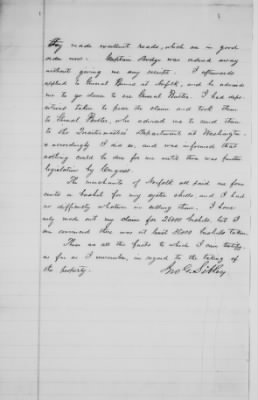 They made excellent roads, which are in good
order now. Captain Dodge was ordered away
without giving me any receipt. I afterwards
applied to General Burns at Norfolk, and he advised
me to go down to see General Butler. I had depo-
sitions taken to prove the claim and took them
to General Butler, who advised me to send them
to the Quartermasters' Department at Washington
& accordingly I did so, and was informed that
nothing could be done for me until there was further
legislation by Congress.
The merchants of Norfolk all paid me four
cents a bushel for my oyster shells and I had
no difficulty whatever in selling them. I have
only made out my claim for 25000 bushels, but I
am convinced there was at least 30000 bushels taken.
These are all the facts to which I can testify
as far as I remember, in regard to the taking of
the property.
Jno. G. Sibley